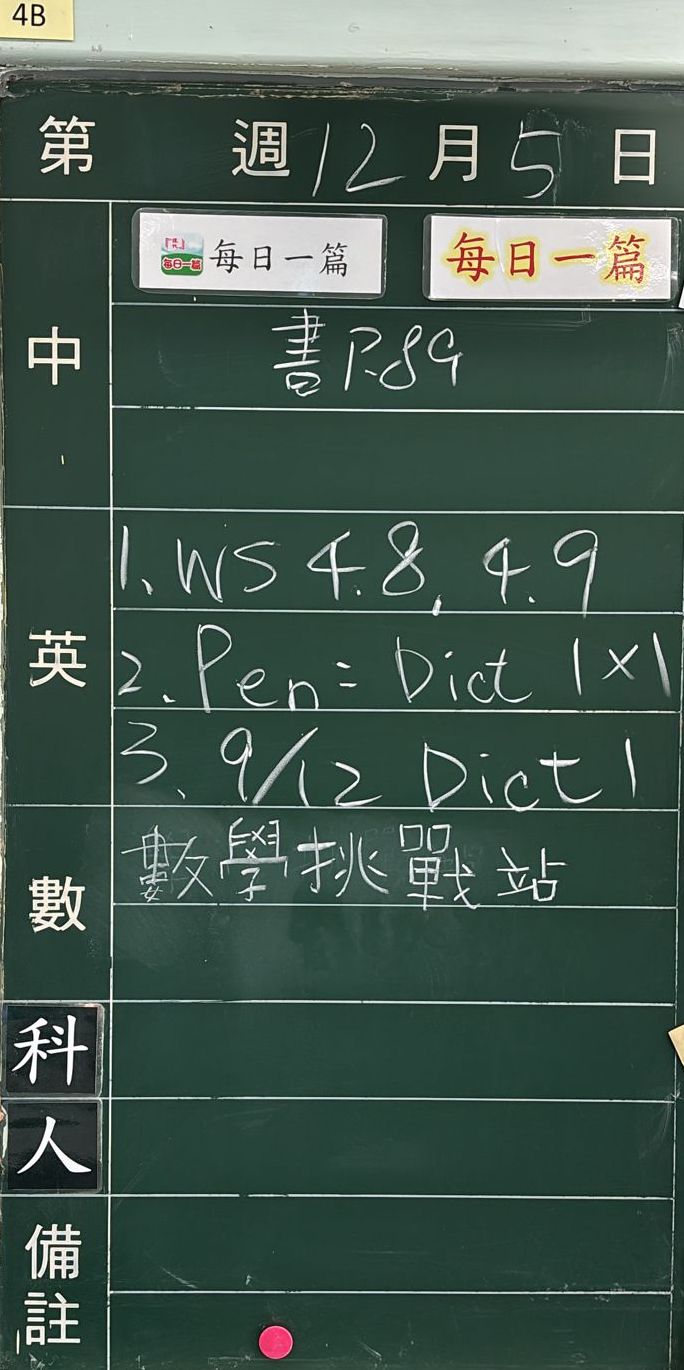 4B
第 週 12 月 5 日
每日一篇 每日一篇 每日一篇
中
書 P.89
英
1. WS 4.8, 4.9
2. Pen= Dict 1×1
3. 9/12 Dict 1
數
數學挑戰站
科
人
備註